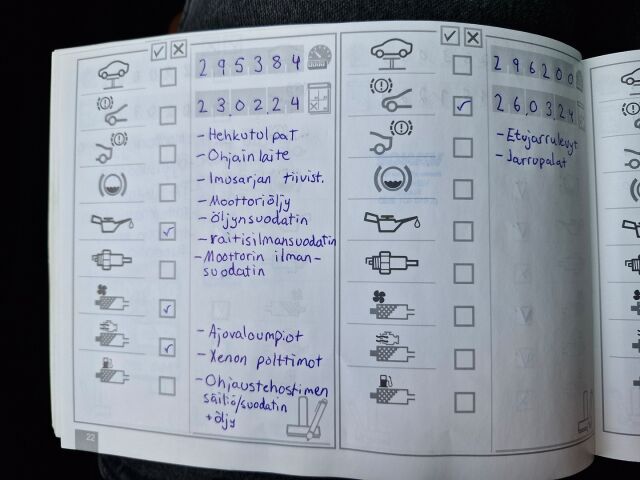 295384
23.02.24
- Hehkutolpat
- Ohjainlaite
- Imusarjan tiivist.
- Moottoriöljy
- öljynsuodatin
- raitisilmansuodatin
- Moottorin ilman-
suodatin
- Ajovaloumpiot
- Xenon polttimot
- Ohjaustehostimen
säiliö/suodatin
+ öljy
22
296200
26.03.24
- Etujarrulevyt
- Jarrupalat